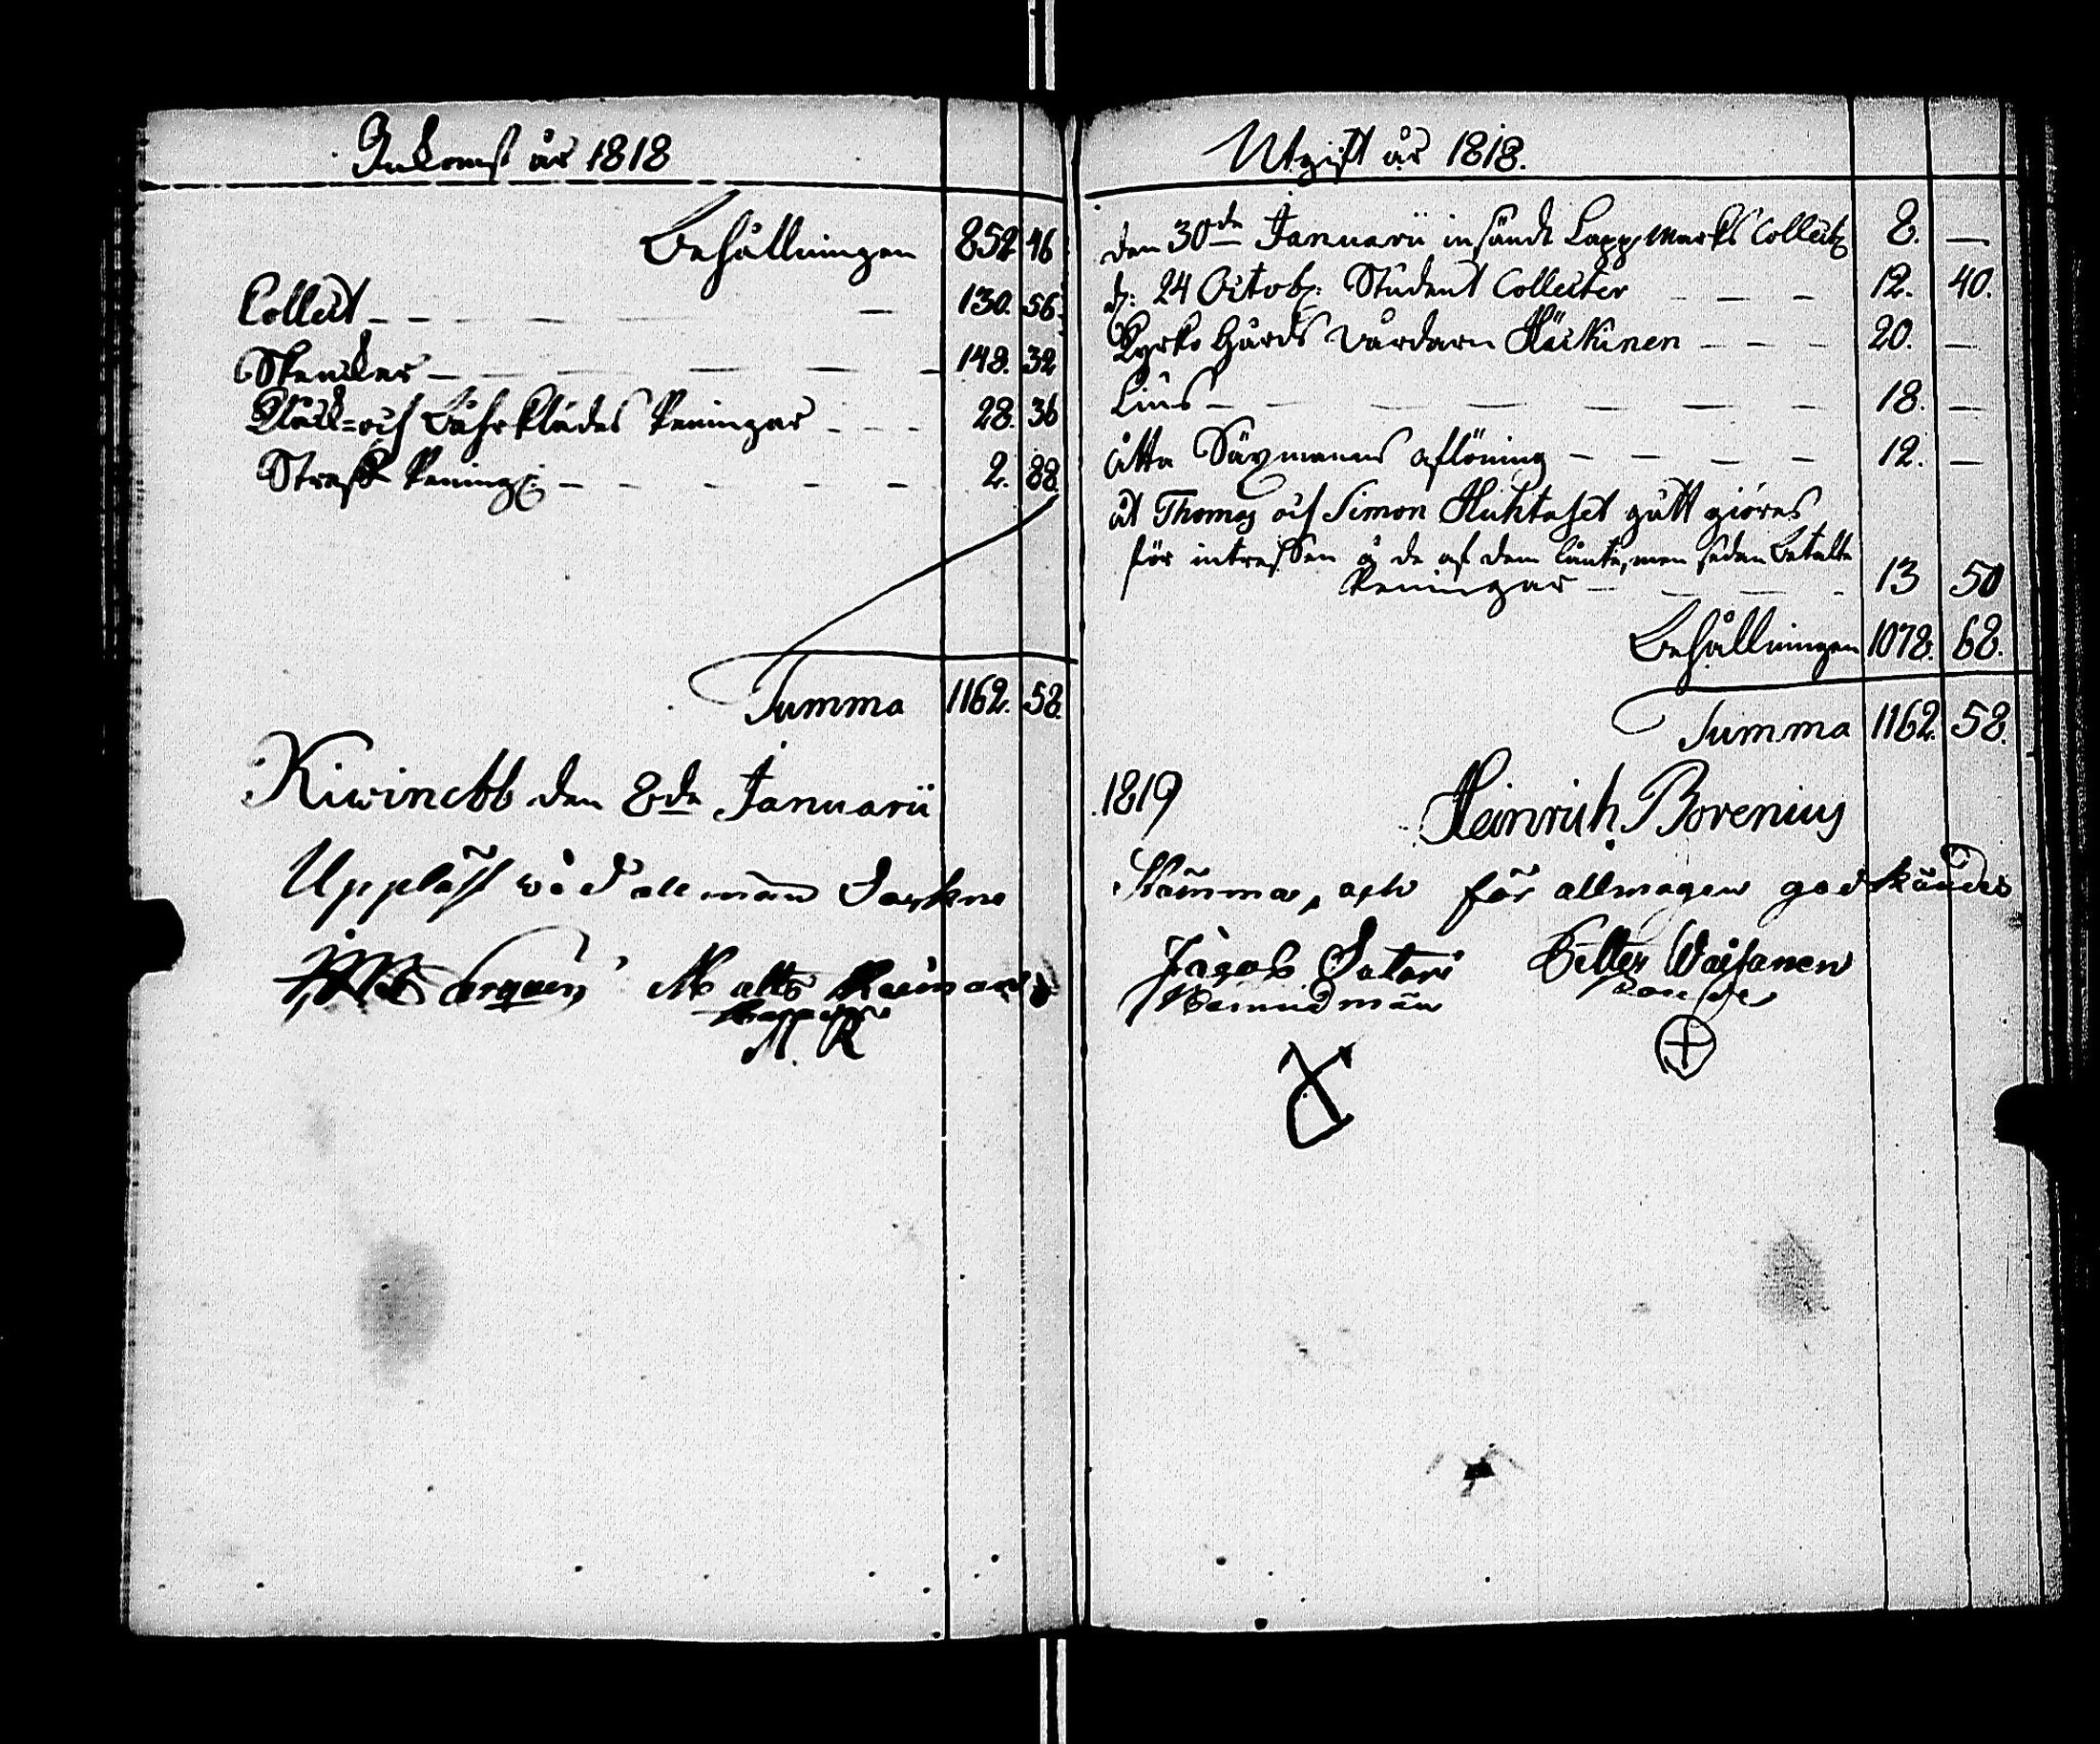 Inkomst år 1818
Behållningen 852 46
Collect 130. 56.
Skenker 148. 32
Klåck- och Båhrklädes Peningar 28. 36
Straff Pening: 2. 88.
Summa 1162. 58.
Kiwinebb den 8de Januarii
Uppläst wid allmän Sockne
Matts
M. R
Utgift år 1818.
den 30de Januarii insände Lappmarks Collect 8. —
d: 24 Octob: Student Collecter 12. 40.
Kyrko Gårds Vårdarn Häikinen 20. —
Lius 18. —
åtta Säxmanns aflöning 12. —
åt Thomas och Simon Huhtaset gått giöres
för intressen å de af dem lånte, men sedan betalte
Peningar 13 50
Behållningen 1078. 68.
Summa 1162. 58.
1819 Heinrich Borenius
Stämma, och för allmogen godkändes
Jacob Satari Petter Wäisänen
Nämndman